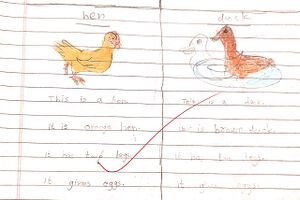 hen
duck
This is a hen.
It is orange hen.
It has two legs.
It gives eggs.
This is a duck.
It is brown duck.
It has two legs.
It gives eggs.